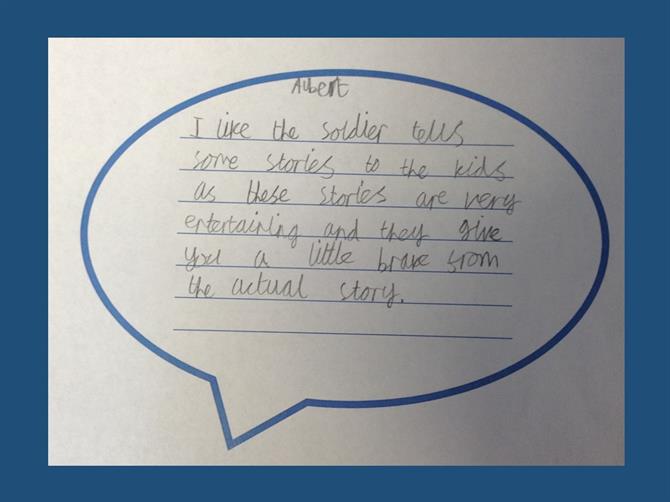 Albert
I like the soldier tells
some stories to the kids
as these stories are very
entertaining and they give
you a little brake from
the actual story.